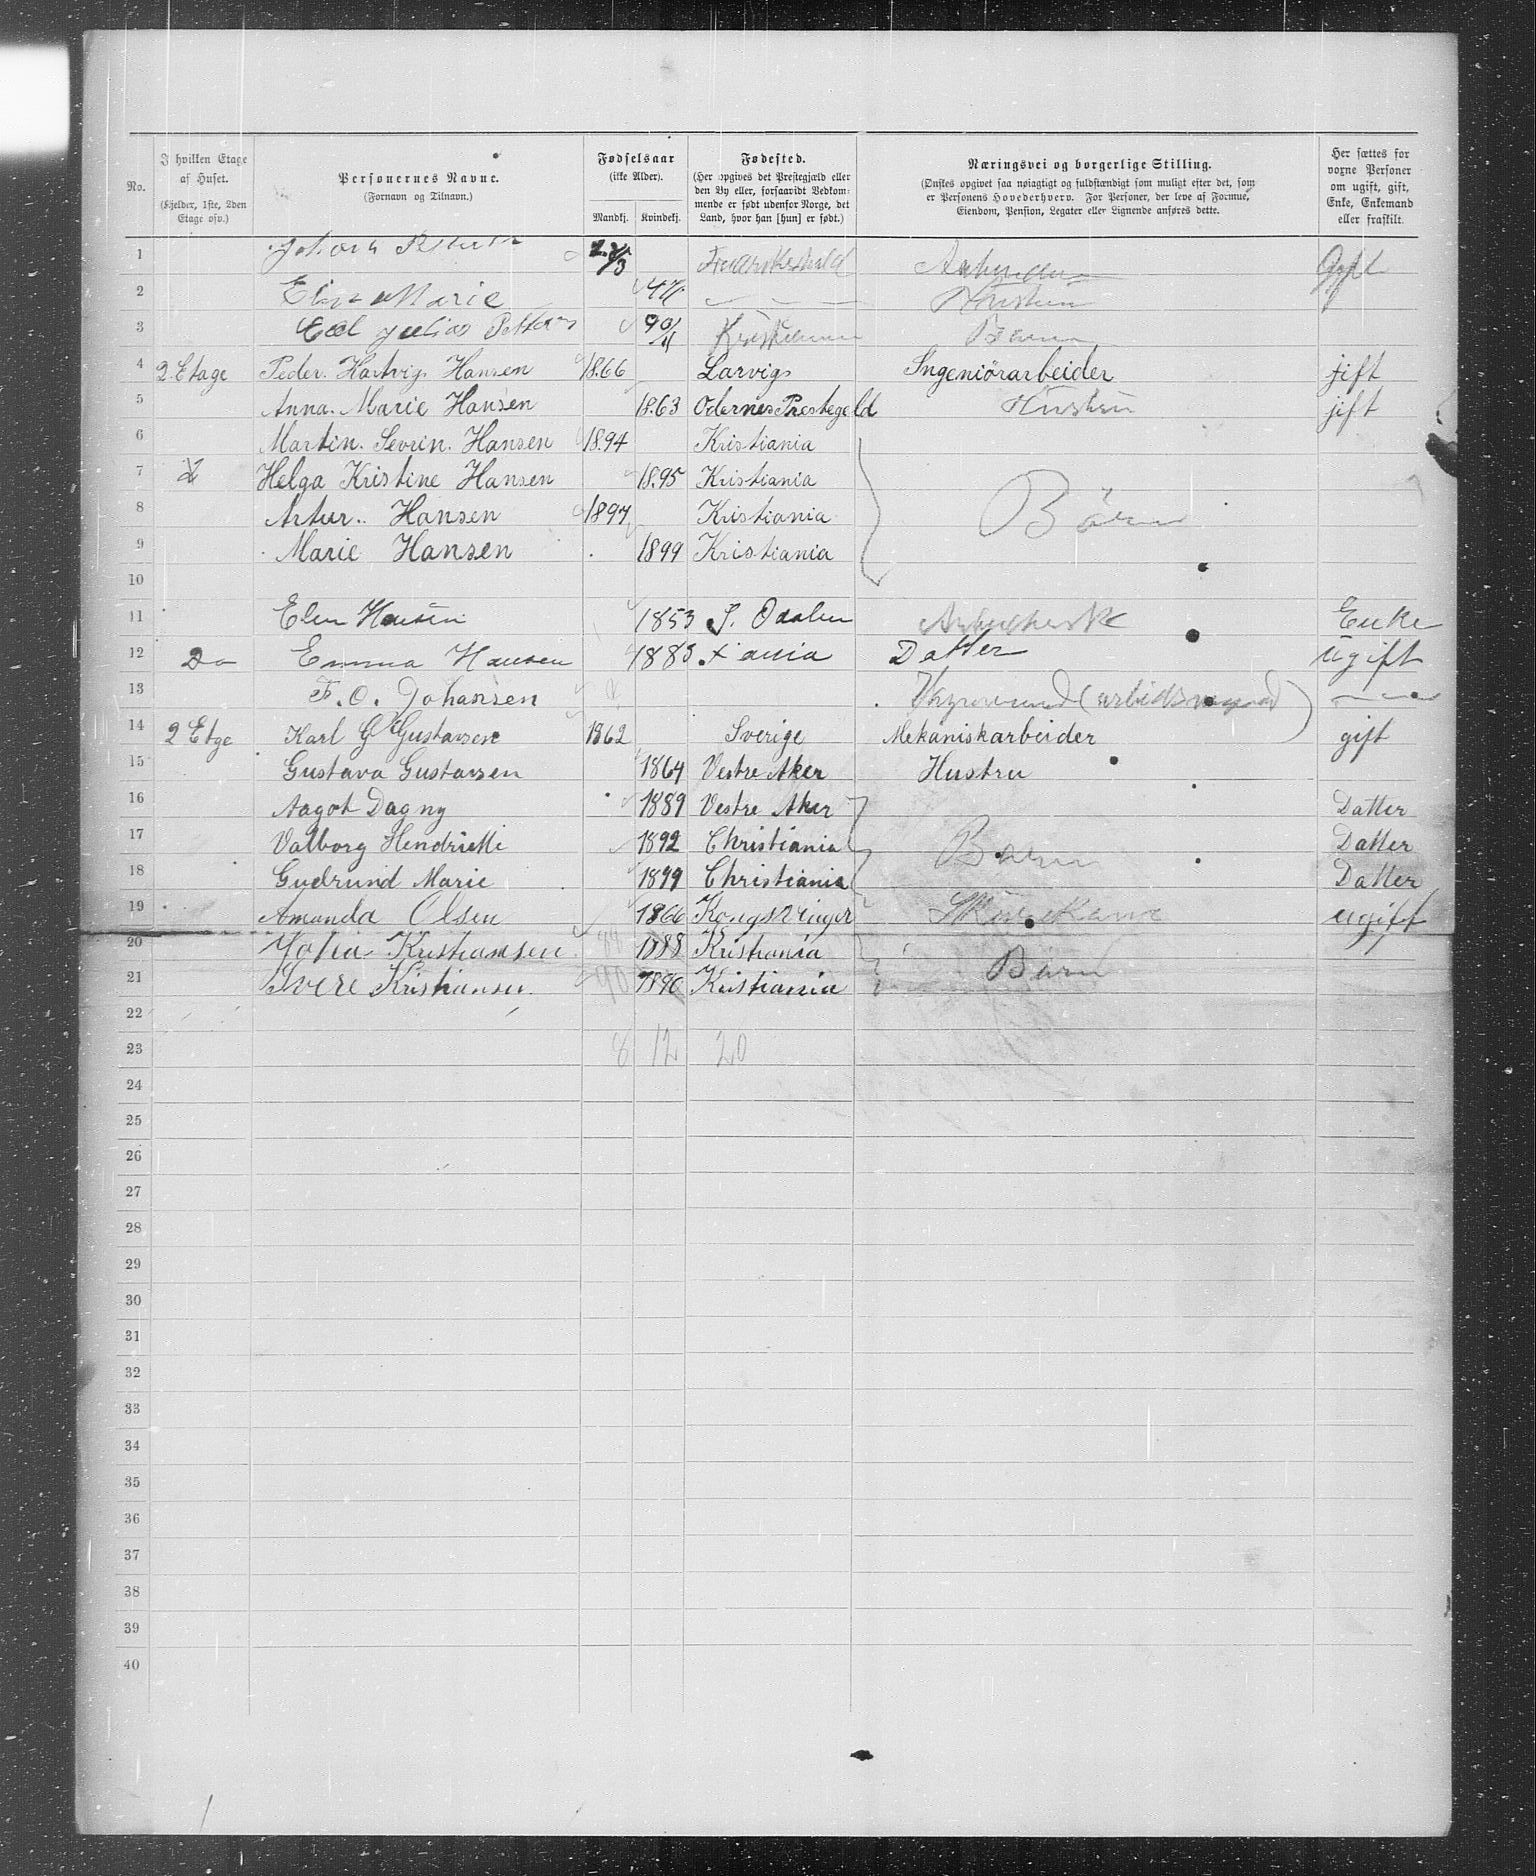 No.
I hvilken Etage af Huset. (Kjelder, 1ste, 2den Etage osv.)
Personernes Navne. (Fornavn og Tilnavn.)
Fødselsaar (ikke Alder). Mandkj. Kvindekj.
Fødested. (Her opgives det Prestegjæld eller den By eller, forsaavidt Vedkommende er født udenfor Norge, det Land, hvor han [hun] er født.)
Næringsvei og borgerlige Stilling. (Ønskes opgivet saa nøiagtigt og fuldstændigt som muligt efter det, som er Personens Hovederhverv. For Personer, der leve af Formue, Eiendom, Pension, Legater eller Lignende anføres dette.)
Her sættes for voxne Personer om ugift, gift, Enke, Enkemand eller fraskilt.
1 Fredrikshald Gift
2 Marie Hustru
3 Julius Barn
4 2. Etage Peder. Hartvig. Hansen 1866 Larvig Ingeniörarbeider jift
5 Anna. Marie Hansen 1863 Odernes Prestegeld Hustru jift
6 Martin. Sevrin. Hansen 1894 Kristiania
7 Helga Kristine Hansen 1895 Kristiania
8 Artur. Hansen 1897 Kristiania Börn
9 Marie Hansen 1899 Kristiania
10
11 Elen Hansen 1853 S. Odalen Enke
12 Do Emma Hansen 1885 x ania Datter Ugift
13 F. O. Johansen
14 2 Etge Karl G Gustavsen 1862 Sverige Mekaniskarbeider gift
15 Gustava Gustavsen 1864 Vestre Aker Hustru
16 Aagot Dagny 1889 Vestre Aker Datter
17 Valborg Hendriette 1892 Christiania Børn Datter
18 Gudrund Marie 1899 Christiania Datter
19 Amanda Olsen 1866 Kongsvinger ugift
20 Kristiansen 88 1888 Kristiania
21 Sverre Kristiansen 90 1890 Kristiania Børn
22
23 8 12 20
24
25
26
27
28
29
30
31
32
33
34
35
36
37
38
39
40